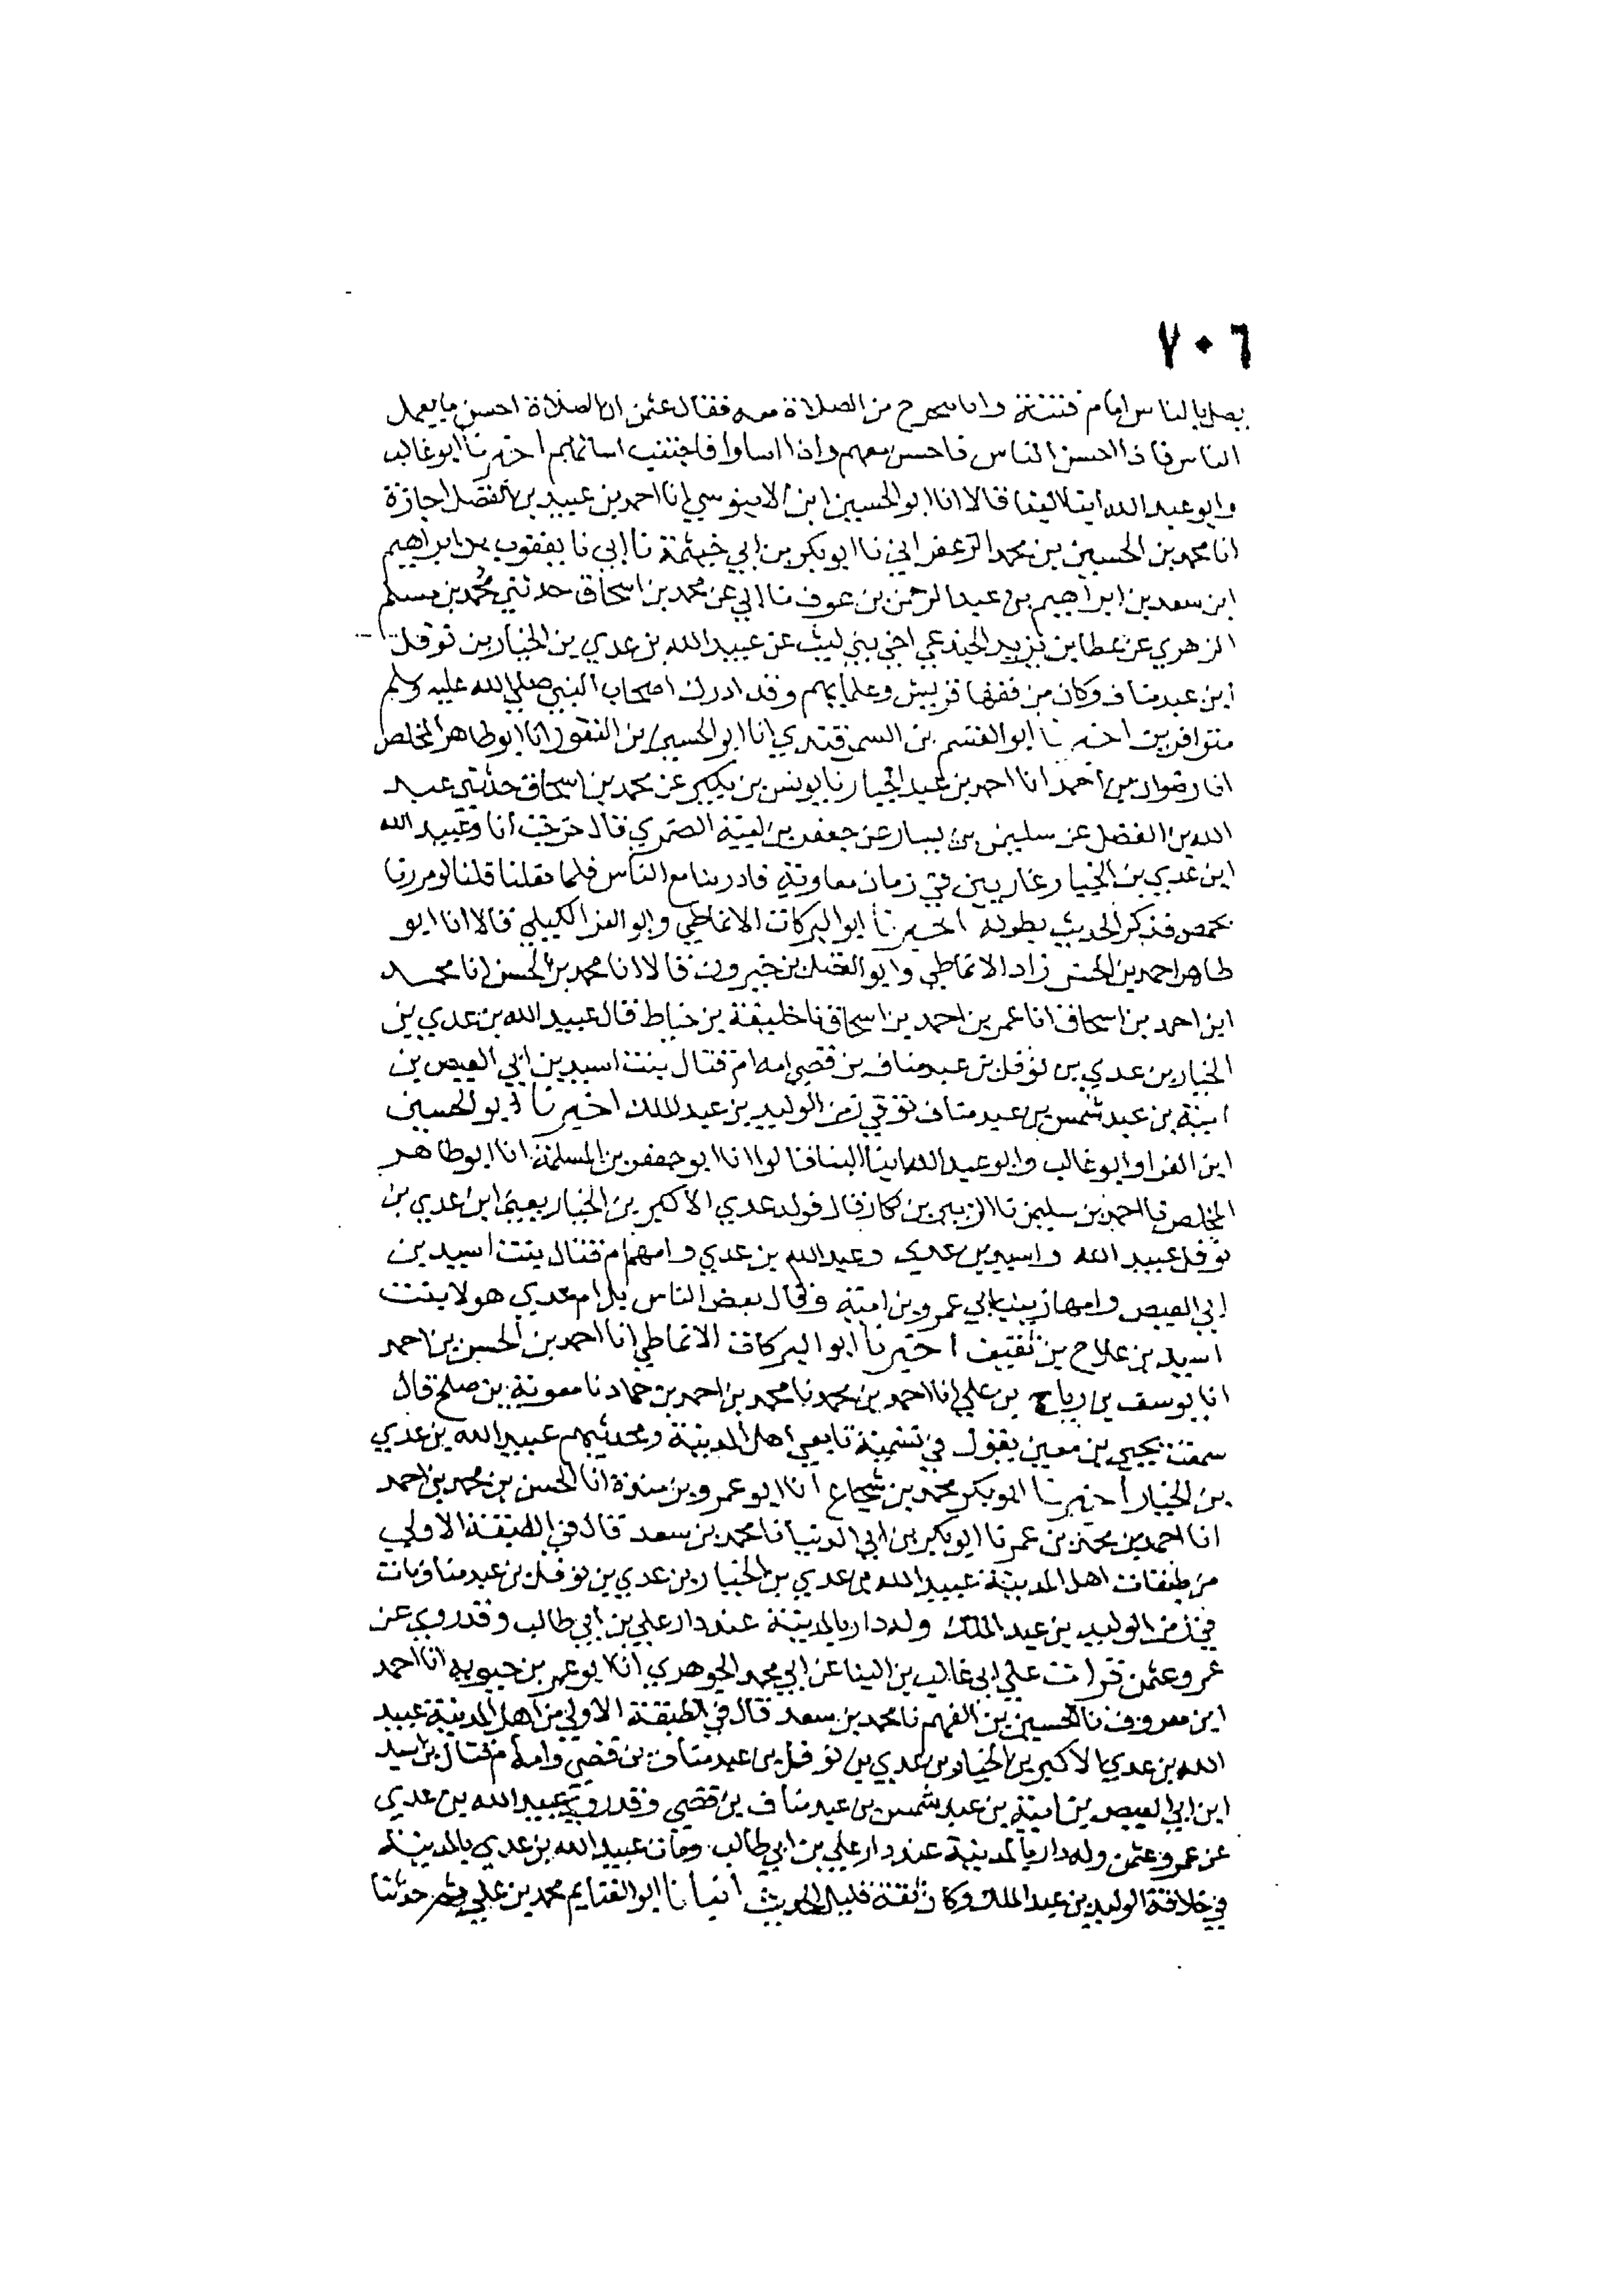 ٧٠٦
يصلي بالناس امام فتنة وانا نتحرج من الصلاة معه فقال عثمن ان الصلاة احسن ما يعمل
الناس فاذا احسن الناس فاحسن معهم واذا اساوا فاجتنب اساتهم اخبرنا ابو غالب
وابو عبد الله ابنا البنا قالا انا ابو الحسين ابن الابنوسي انا احمد بن عبيد بن الفضل اجازة
انا محمد بن الحسين بن محمد الزعفراني نا ابو بكر بن ابي خيثمة نا ابي نا يعقوب بن ابراهيم
ابن سعد بن ابراهيم بن عبد الرحمن بن عوف نا ابي عن محمد بن اسحاق حدثني محمد بن مسلم
الزهري عن عطا بن يزيد الجندعي اخي بني ليث عن عبيد الله بن عدي بن الخيار بن نوفل
ابن عبد مناف وكان من فقها قريش وعلمايهم وقد ادرك اصحاب النبي صلى الله عليه وسلم
متوافرين اخبرنا ابو القسم بن السمرقندي انا ابو الحسين بن النقور انا ابو طاهر المخلص
انا رضوان بن احمد انا احمد بن عبد الجبار نا يونس بن بكير عن محمد بن اسحاق حدثني عبد
الله بن الفضل عن سليمن بن يسار عن جعفر بن امية الضمري قال خرجت انا وعبيد الله
ابن عدي بن الخيار غازيين في زمان معاوية فادربنا مع الناس فلما قفلنا قلنا لو مررنا
بحمص فذكر الحديث بطوله اخبرنا ابو البركات الانماطي وابو العز الكيلي قالا انا ابو
طاهر احمد بن الحسن زاد الانماطي وابو الفضل بن خيرون قالا انا محمد بن الحسن انا محمد
ابن احمد بن اسحاق انا عمر بن احمد بن اسحاق نا خليفة بن خياط قال عبيد الله بن عدي بن
الخيار بن عدي بن نوفل بن عبد مناف بن قصي امه ام قتال بنت اسيد بن ابي العيص بن
امية بن عبد شمس بن عبد مناف توفي زمن الوليد بن عبد الملك اخبرنا ابو الحسين
ابن الفرا وابو غالب وابو عبد الله ابنا البنا قالوا انا ابو جعفر بن المسلمة انا ابو طاهر
المخلص نا احمد بن سليمن نا الزبير بن بكار قال فولد عدي الاكبر بن الخيار يعني ابن عدي بن
نوفل عبيد الله واسيد بن عدي وعبد الله بن عدي وامهم ام قتال بنت اسيد بن
ابي العيص وامها زينب بنت ابي عمرو بن امية وقال بعض الناس بل ام عدي هولا بنت
اسيد بن علاج بن ثقيف اخبرنا ابو البركات الانماطي انا احمد بن الحسن بن احمد
انا يوسف بن رباح بن علي انا احمد بن محمد نا محمد بن احمد بن حماد نا معوية بن صلح قال
سمعت يحيي بن معين يقول في تسمية تابعي اهل المدينة ومحدثيهم عبيد الله بن عدي
بن الخيار اخبرنا ابو بكر محمد بن شجاع انا ابو عمرو بن مندة انا الحسن بن محمد بن احمد
انا احمد بن محمد بن عمر نا ابو بكر بن ابي الدنيا نا محمد بن سعد قال في الطبقة الاولي
من طبقات اهل المدينة عبيد الله بن عدي بن الخيار بن عدي بن نوفل بن عبد مناف مات
في زمن الوليد بن عبد الملك وله دار بالمدينة عند دار علي بن ابي طالب وقد روي عن
عمر وعثمن قرات علي ابي غالب بن البنا عن ابي محمد الجوهري انا ابو عمر بن حيويه انا احمد
ابن معروف نا الحسين بن الفهم نا محمد بن سعد قال في الطبقة الاولي من اهل المدينة عبيد
الله بن عدي الاكبر بن الخيار بن عدي بن نوفل بن عبد مناف بن قصي وامه ام قتال بنت اسيد
ابن ابي العيص بن امية بن عبد شمس بن عبد مناف بن قصي وقد روي عبيد الله بن عدي
عن عمر وعثمن وله دار بالمدينة عند دار علي بن ابي طالب ومات عبيد الله بن عدي بالمدينة
في خلافة الوليد بن عبد الملك وكان ثقة قليل الحديث انبانا ابو الغنايم محمد بن علي ثم حدثنا